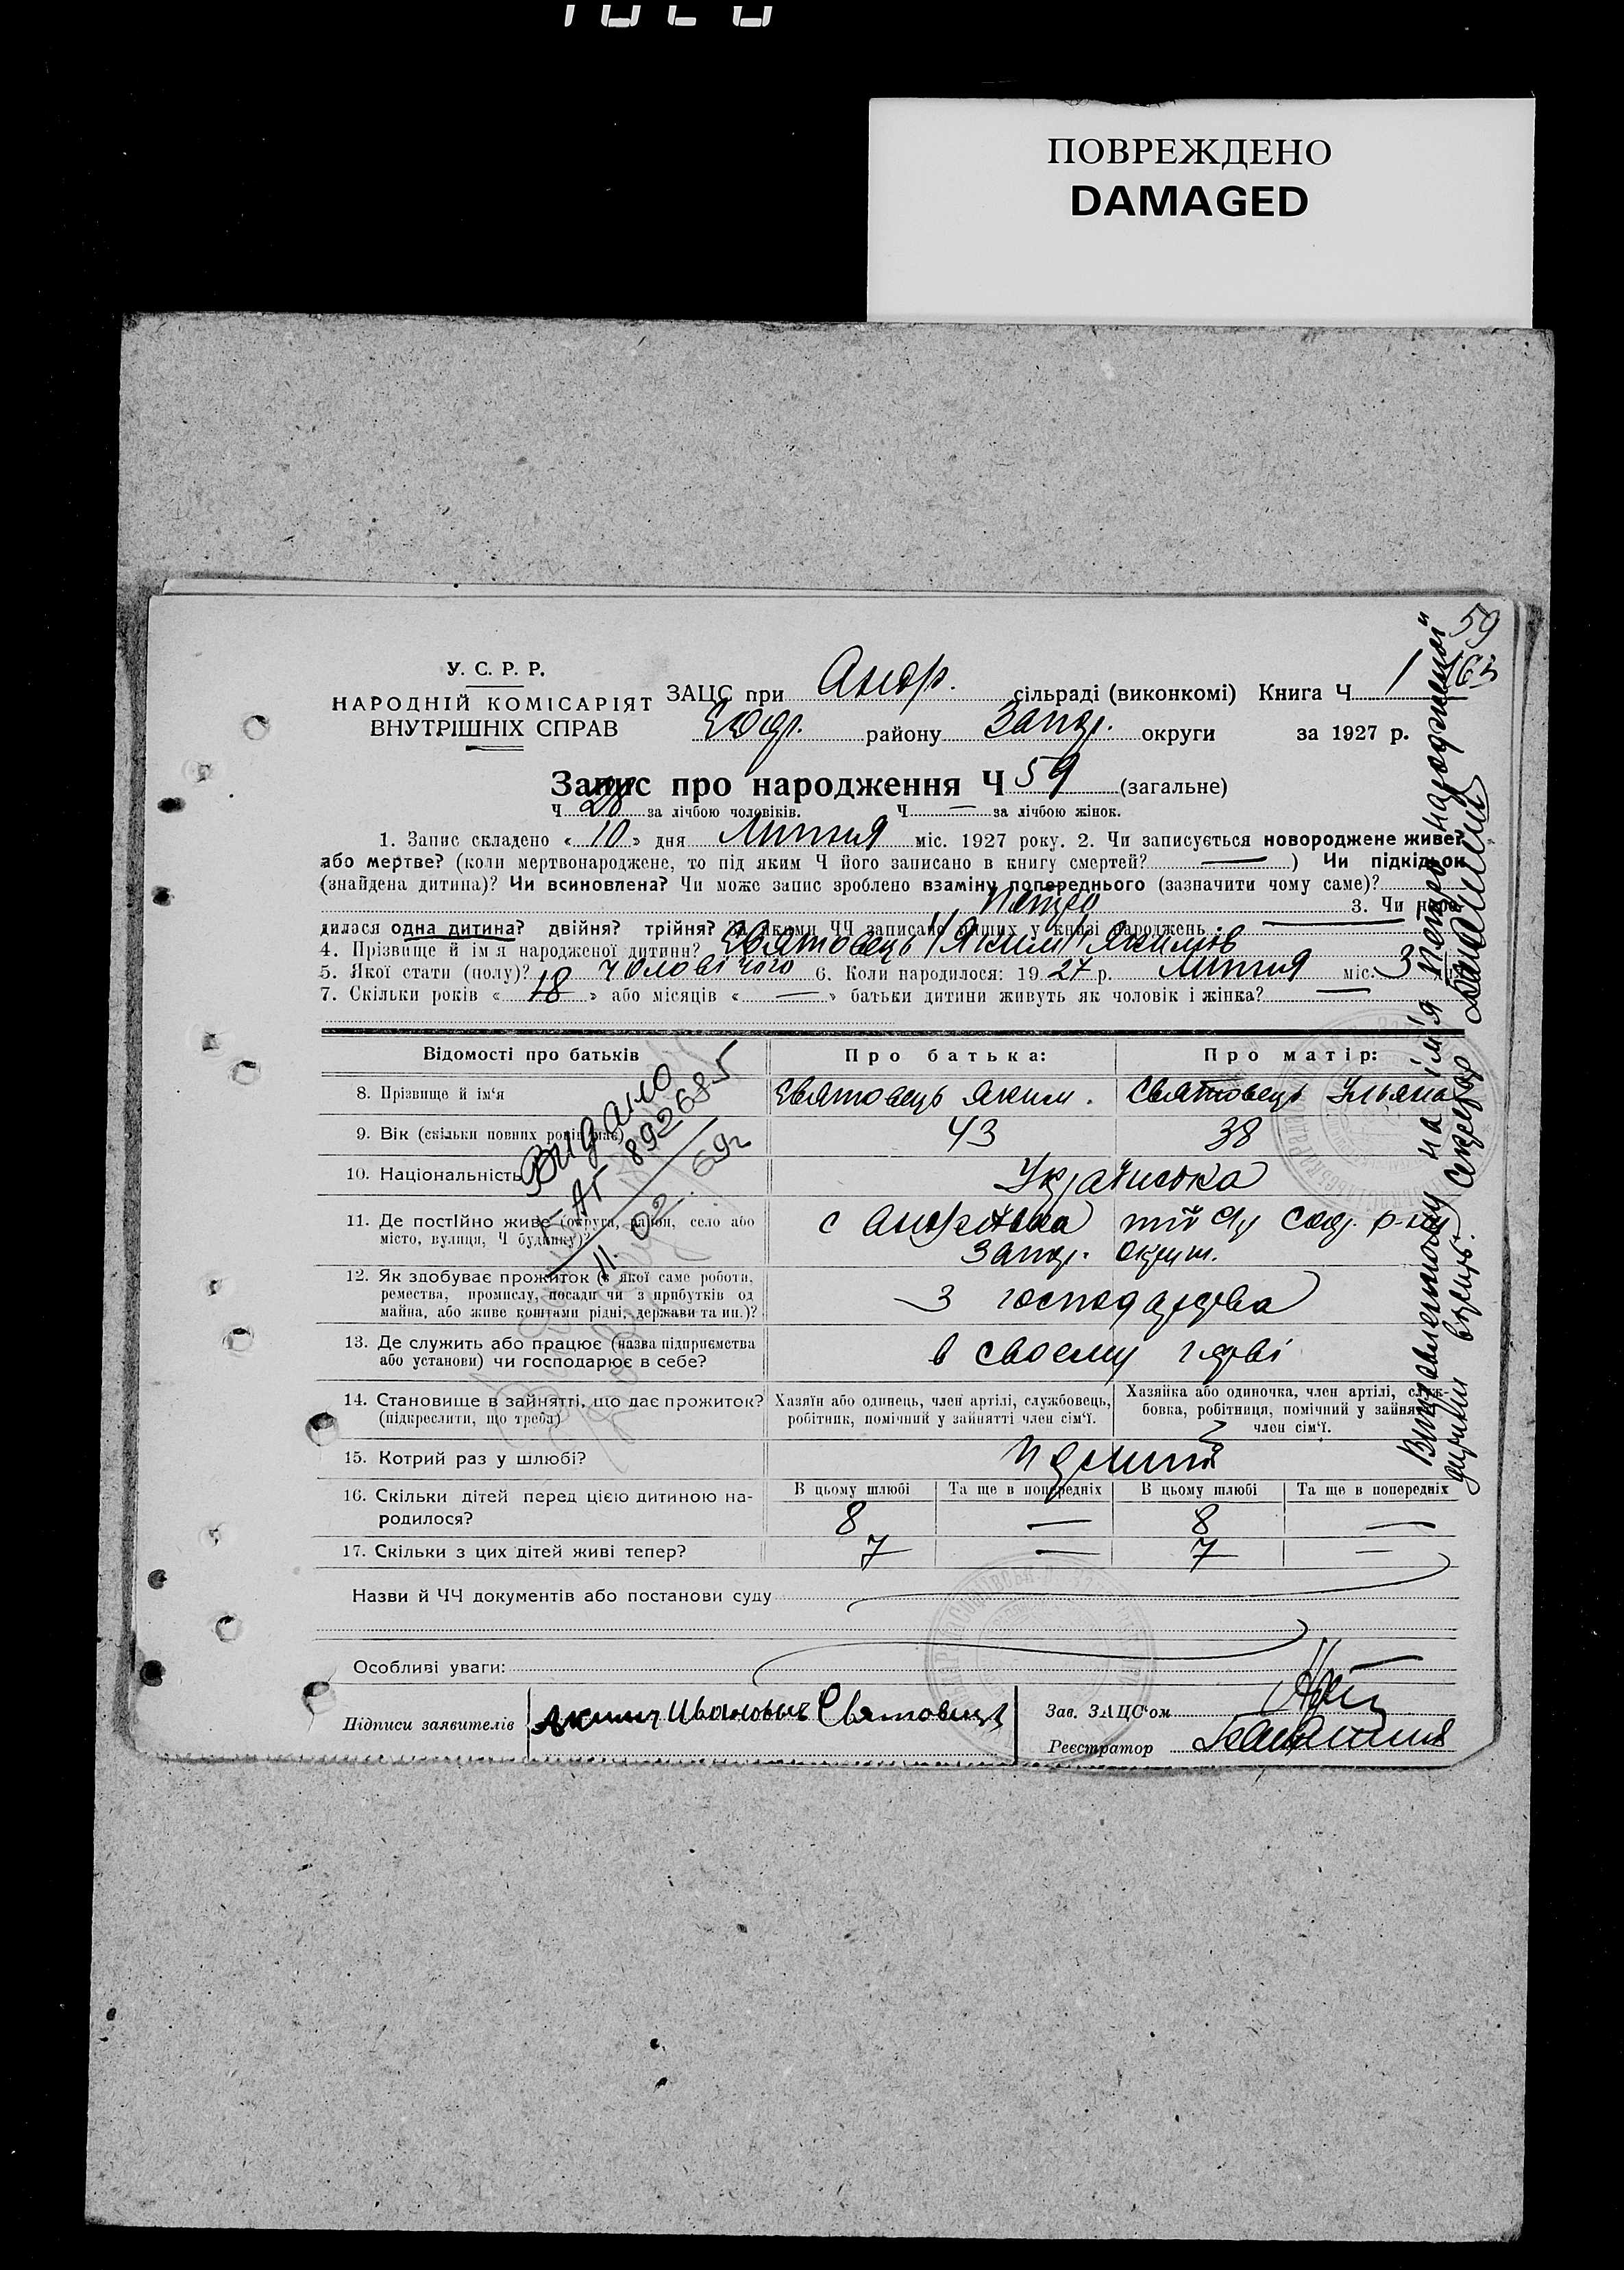 ПОВРЕЖДЕНО
DAMAGED
59
У. С. Р. Р.
НАРОДНІЙ КОМІСАРІЯТ
ВНУТРІШНІХ СПРАВ
ЗАЦС при Андр. сільраді (виконкомі) Книга Ч 1
району Запор. округи за 1927 р.
Запис про народження Ч 59 (загальне)
Ч 28 за лічбою чоловіків. Ч — за лічбою жінок.
1. Запис складено « 10 » дня Липня міс. 1927 року. 2. Чи записується новороджене живе?
або мертве? (коли мертвонароджене, то під яким Ч його записано в книгу смертей? — ) Чи підкідьок
(знайдена дитина)? Чи всиновлена? Чи може запис зроблено взаміну попереднього (зазначити чому саме)?
Петро 3. Чи наро
дилася одна дитина? двійня? трійня? За якими ЧЧ записано інших у книзі народжень —
4. Прізвище й ім'я народженої дитини? Святовець "Яким" Якимов
5. Якої стати (полу)? чоловічого 6. Коли народилося: 1927 р. Липня міс. 3
7. Скільки років « 18 » або місяців « — » батьки дитини живуть як чоловік і жінка? —
Відомості про батьків Про батька: Про матір:
8. Прізвище й ім'я Святовець Яким. Святовець Ульяна
9. Вік (скільки повних років має) 43 38
10. Національність Українська
11. Де постійно живе (округа, район, село або
місто, вулиця, Ч будинку)?
с Андріївка
Запор. округи.
12. Як здобуває прожиток (з якої саме роботи,
ремества, промислу, посади чи з прибутків од
майна, або живе коштами рідні, держави та ин.)?
З господарства
13. Де служить або працює (назва підприємства
або установи) чи господарює в себе?
в своему
14. Становище в зайнятті, що дає прожиток?
(підкреслити, що треба)
Хазяїн або одинець, член артілі, службовець,
робітник, помічний у зайнятті член сім'ї.
Хазяйка або одиночка, член артілі, служ-
бовка, робітниця, помічний у зайнятті
член сім'ї.
15. Котрий раз у шлюбі?
16. Скільки дітей перед цією дитиною на-
родилося?
В цьому шлюбі Та ще в попередніх В цьому шлюбі Та ще в попередніх
8 — 8 —
17. Скільки з цих дітей живі тепер? 7 — 7 —
Назви й ЧЧ документів або постанови суду
Особливі уваги:
Підписи заявителів Аким Иванович Святовець
Зав. ЗАЦС'ом
Реєстратор
Видано
АГ 892685
11.02.69г
Виправленному на ім'я Петро
секретар